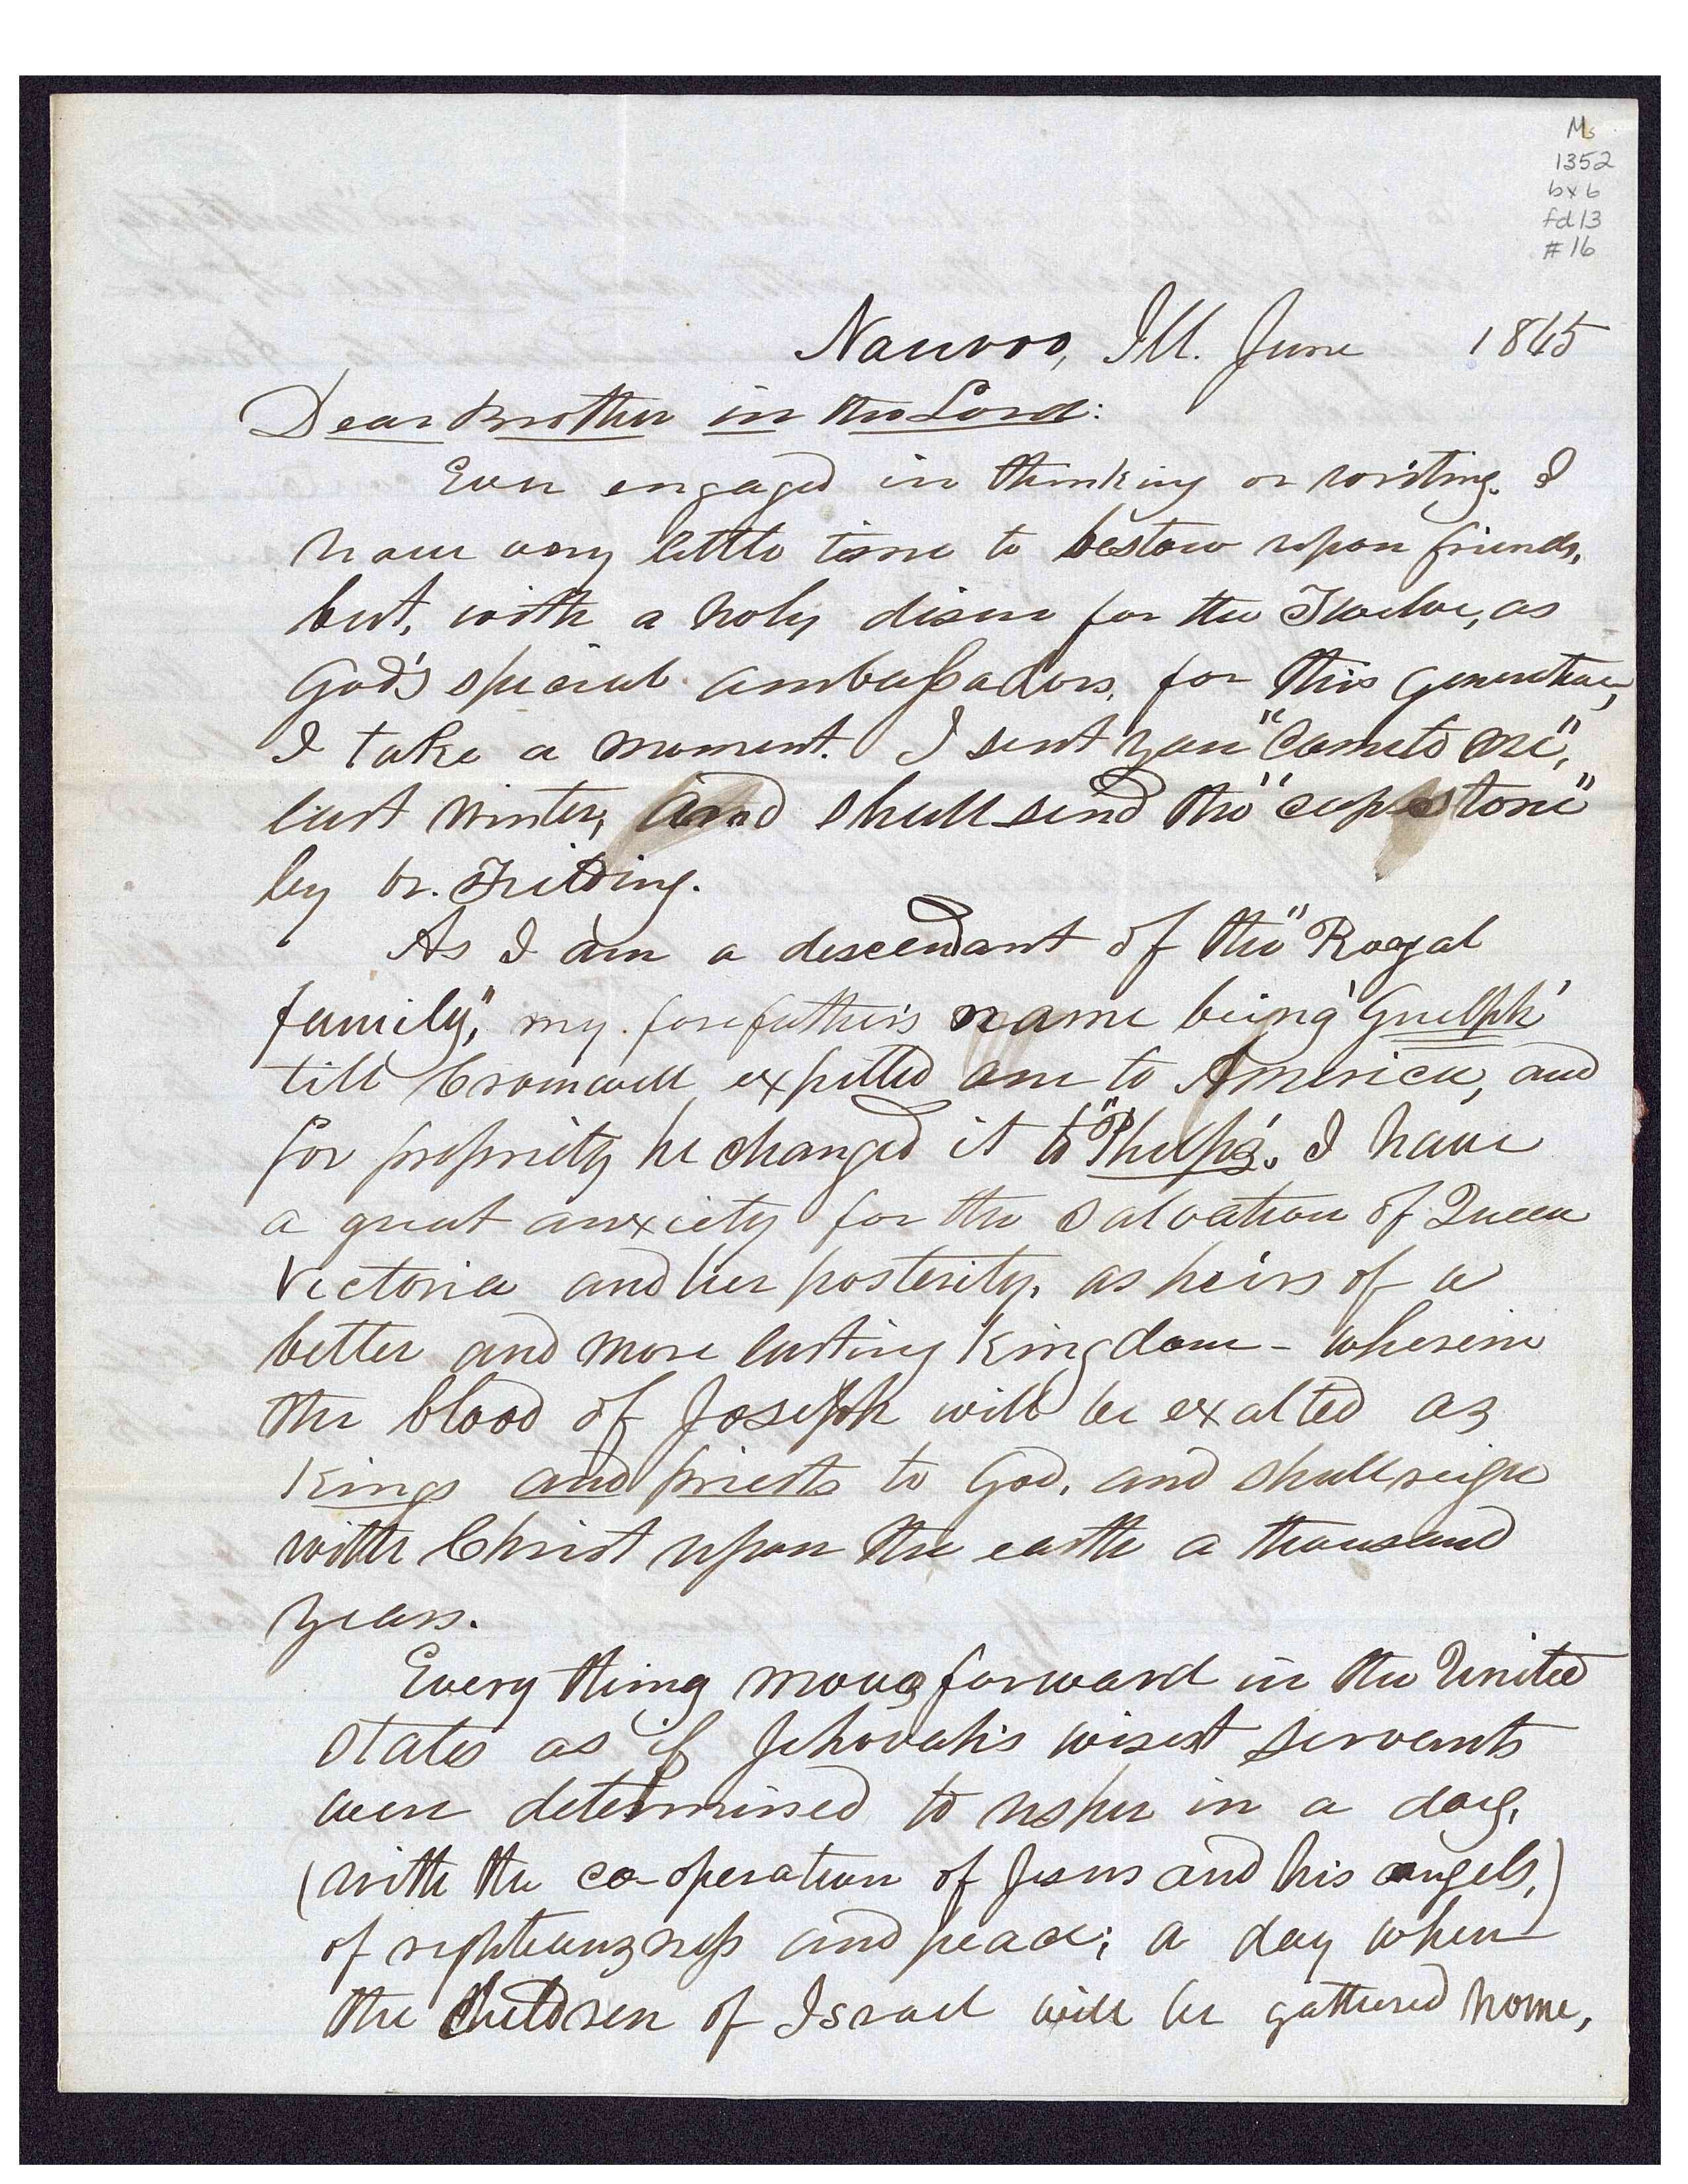 Ms
1352
bx 6
fd 13
# 16
Nauvoo, Ill. June 1845
Dear Brother in the Lord:
Ever engaged in thinking or writing. I
have very little time to bestow upon friends,
but, with a holy desire for the Twelve, as
God's special ambassadors, for this generation,
I take a moment. I sent you "Come to me",
last winter, and shall send the "cap stone"
by br. Fielding.
As I am a descendant of the "Royal
family," my forefather's name being 'Guelph'
till Cromwell expelled one to America, and
for propriety he changed it to "Phelps'. I have
a great anxiety for the salvation of Queen
Victoria and her posterity, as heirs of a
better and more lasting kingdom - wherein
the blood of Joseph will be exalted as
kings and priests to God, and shall reign
with Christ upon the earth a thousand
years.
Every thing moves forward in the United
States as if Jehovah's wisest servants
were determined to usher in a day,
(with the co-operation of Jesus and his angels,)
of righteousness and peace; a day when
the children of Israel will be gathered home,